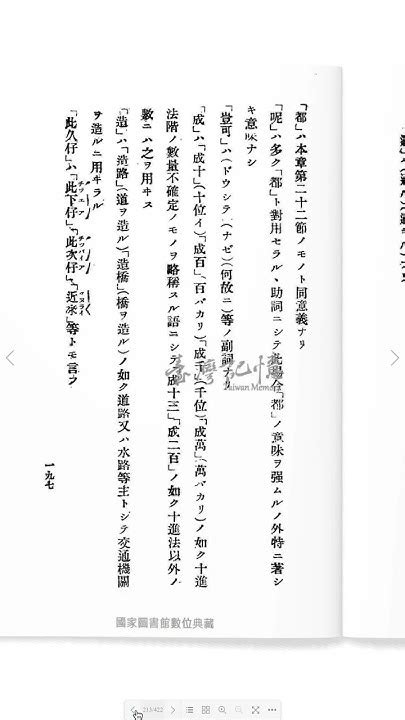 「都」ハ本章第二十二節ノモノト同意義ナリ
「呢」ハ多ク「都」ト對用セラル、助詞ニシテ此場合「都」ノ意味ヲ强ムルノ外特ニ著シ
キ意味ナシ
「豈可」ハ(ドウシテ)(ナゼ)(何故ニ)等ノ副詞ナリ
「成」ハ「成十」(十位イ)「成百」(百バカリ)「成千」(千位)「成萬」(萬バカリ)ノ如ク十進
法階ノ數量不確定ノモノヲ略稱スル語ニシテ「成十三」「成二百」ノ如ク十進法以外ノ
數ニハ之ヲ用ヰス
「造」ハ「造路」(道ヲ造ル)「造橋」(橋ヲ造ル)ノ如ク道路又ハ水路等主トシテ交通機關
ヲ造ルニ用ヰラル
「此久仔」ハ「此下仔」「此次仔」「近來」等トモ言フ
一九七
臺灣記憶
Taiwan Memory
國家圖書館數位典藏
213/422